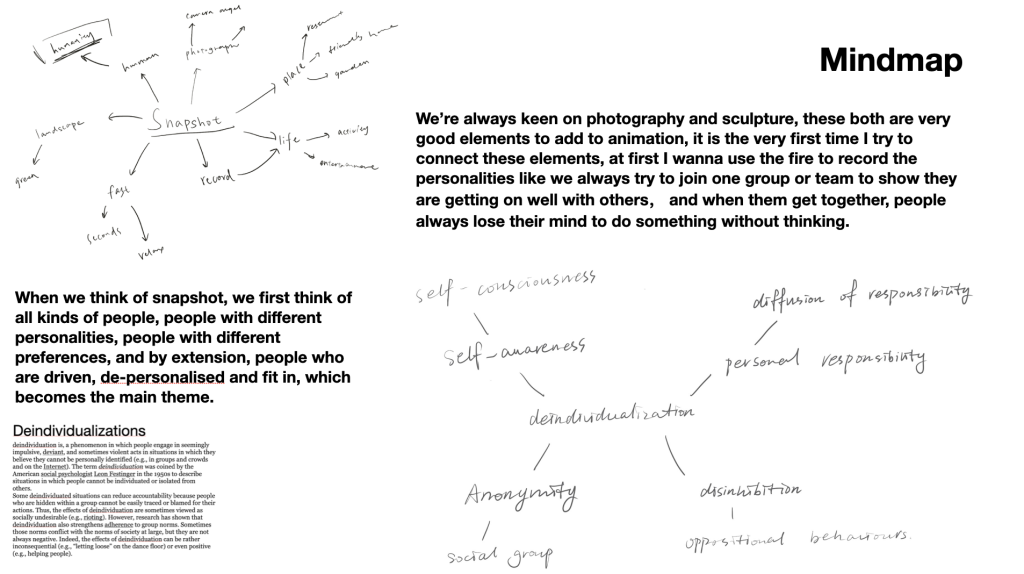 Mindmap
camera angel
photograph
humanity
human
place
friend's home
garden
Snapshot
landscape
green
life
activity
record
fast
seconds
relax
We’re always keen on photography and sculpture, these both are very
good elements to add to animation, it is the very first time I try to
connect these elements, at first I wanna use the fire to record the
personalities like we always try to join one group or team to show they
are getting on well with others, and when them get together, people
always lose their mind to do something without thinking.
When we think of snapshot, we first think of
all kinds of people, people with different
personalities, people with different
preferences, and by extension, people who
are driven, de-personalised and fit in, which
becomes the main theme.
Deindividualizations
deindividuation is, a phenomenon in which people engage in seemingly
impulsive, deviant, and sometimes violent acts in situations in which they
believe they cannot be personally identified (e.g., in groups and crowds
and on the Internet). The term deindividuation was coined by the
American social psychologist Leon Festinger in the 1950s to describe
situations in which people cannot be individuated or isolated from
others.
Some deindividuated situations can reduce accountability because people
who are hidden within a group cannot be easily traced or blamed for their
actions. Thus, the effects of deindividuation are sometimes viewed as
socially undesirable (e.g., rioting). However, research has shown that
deindividuation also strengthens adherence to group norms. Sometimes
those norms conflict with the norms of society at large, but they are not
always negative. Indeed, the effects of deindividuation can be rather
inconsequential (e.g., "letting loose" on the dance floor) or even positive
(e.g., helping people).
self-consciousness
self-awareness
diffusion of responsibility
personal responsibility
deindividualization
Anonymity
social group
disinhibition
oppositional behaviours.